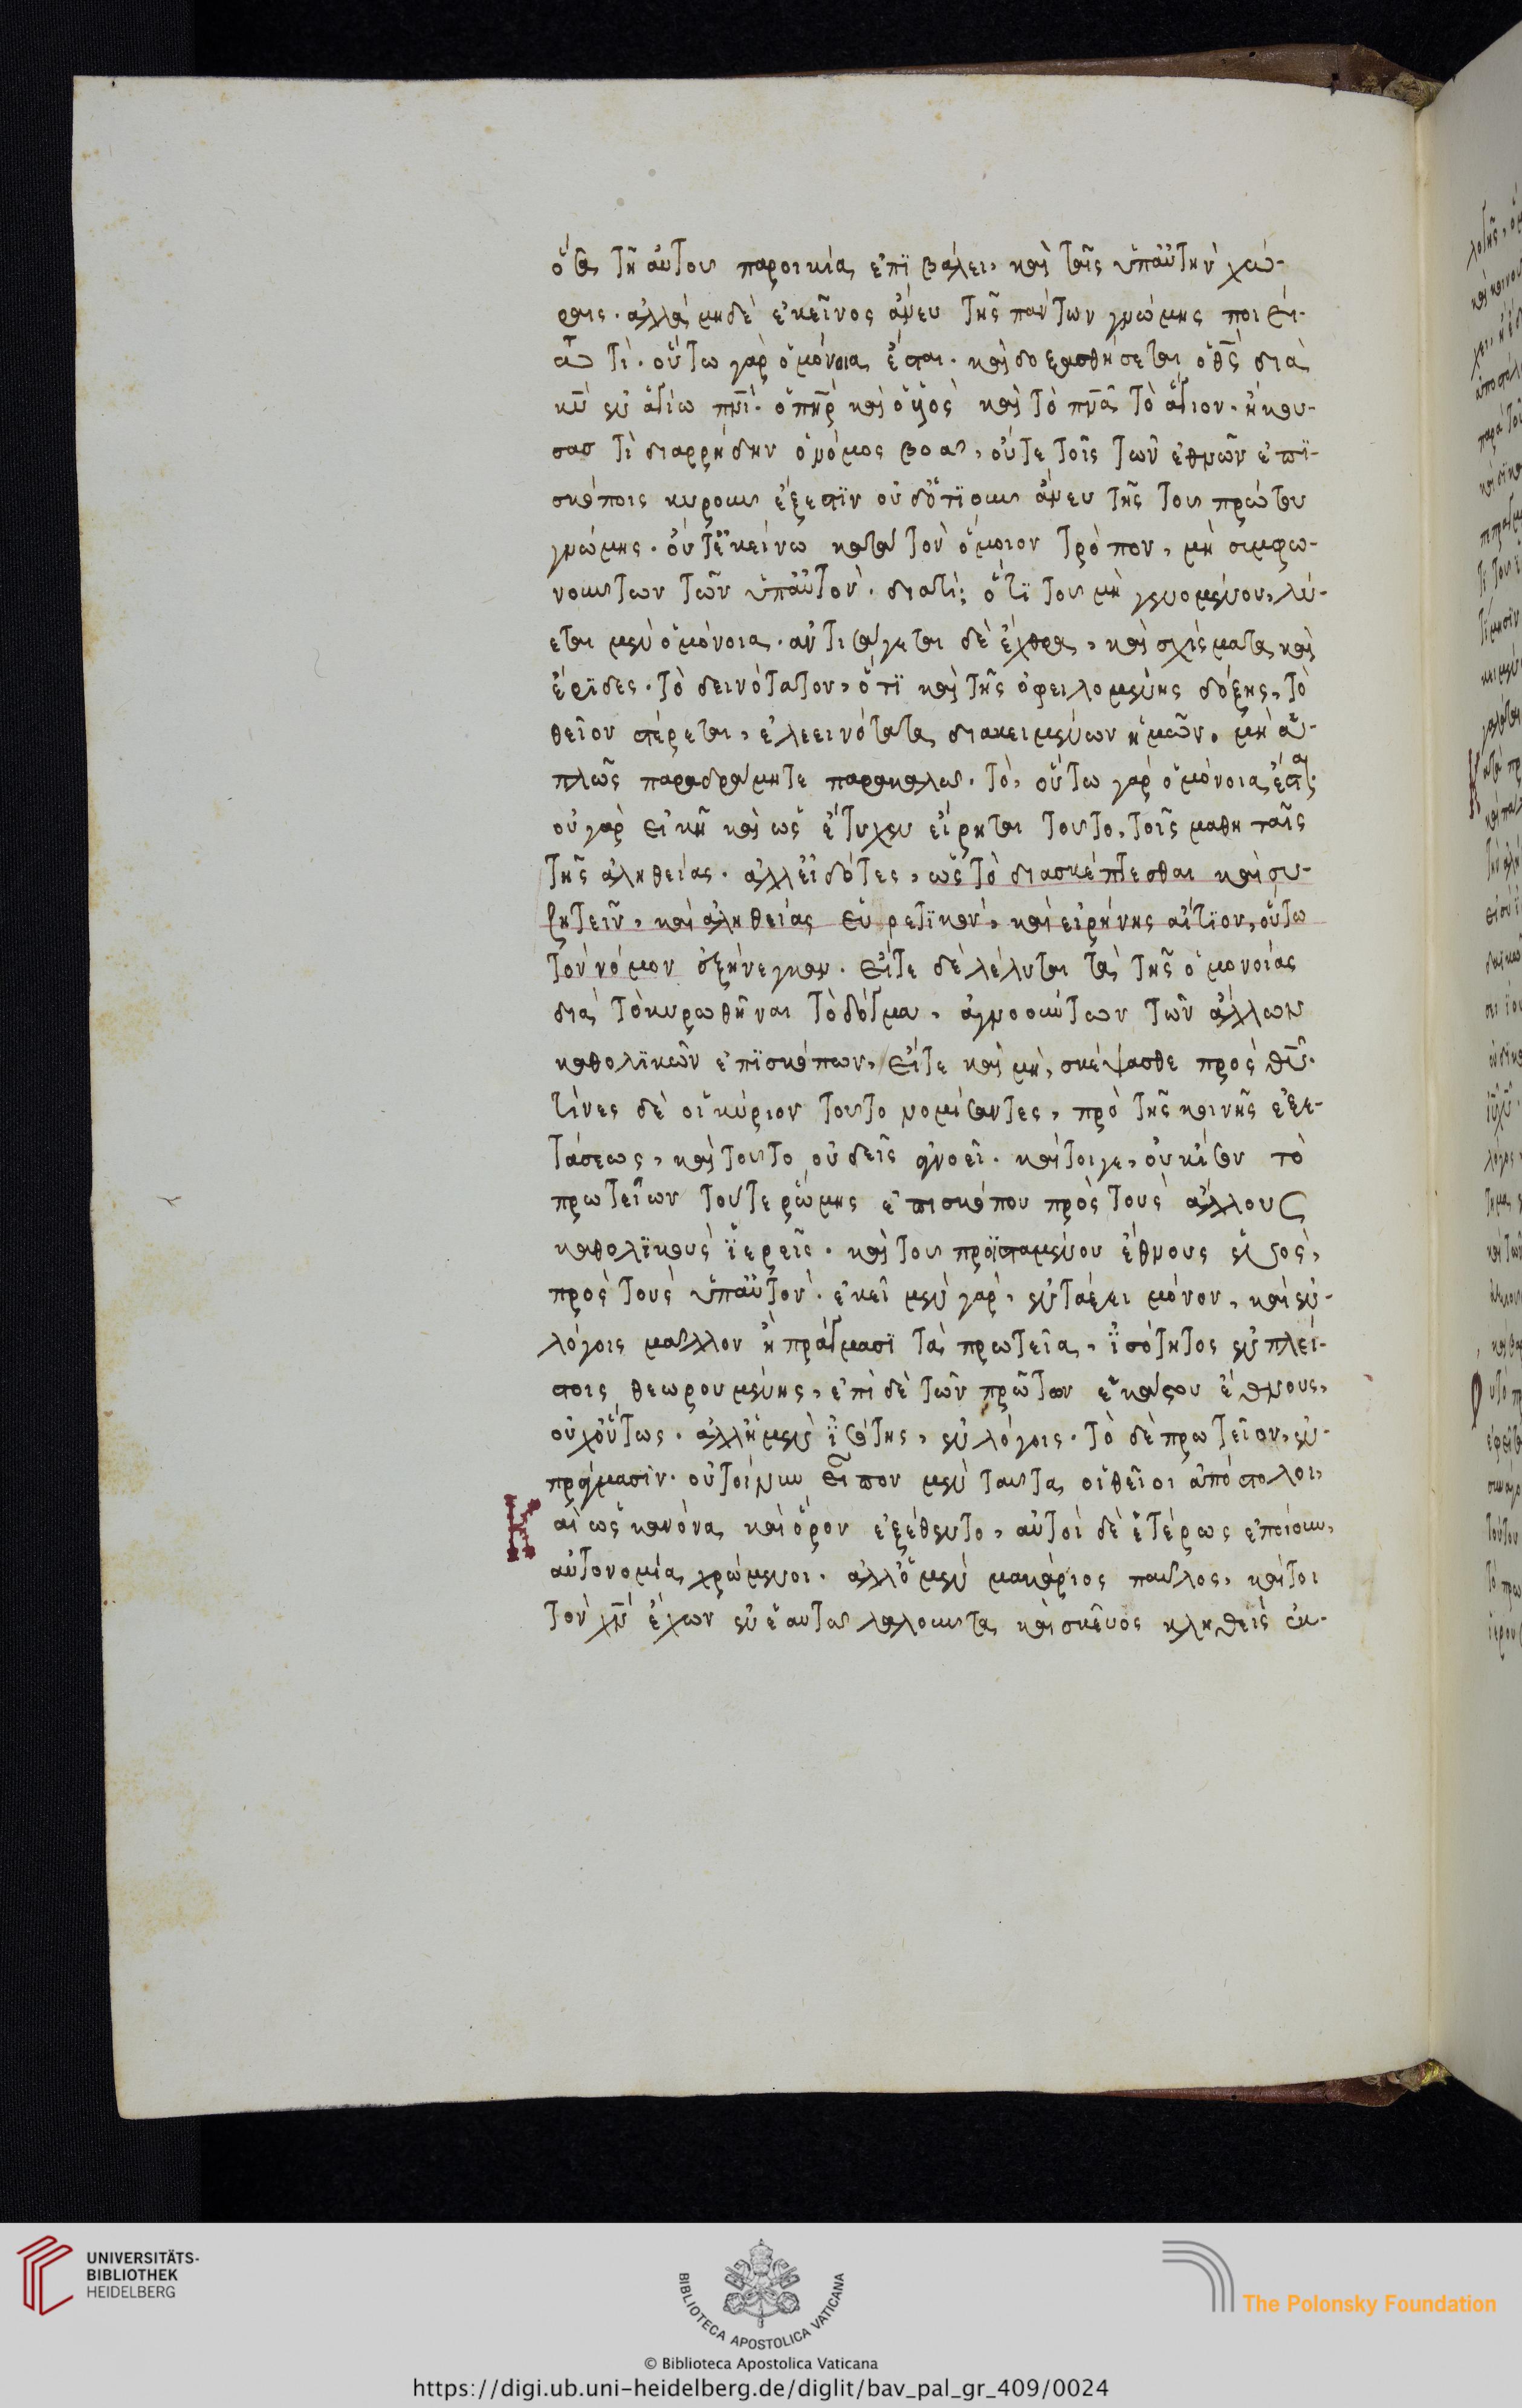 ὅσα τῆ αὐτοῦ παροικία ἐπιβάλει, καὶ ταῖς ὑπαὐτὴν χώ-
ραις. ἀλλὰ μηδὲ ἐκεῖνος ἄνευ τῆς πάντων γνώμης ποιεί-
τω τί. οὕτω γὰρ ὁμόνοια ἔσται. καὶ δοξασθήσεται ὁ θς διὰ
κυ ἐν ἁγίω πνι. ὁ πηρ καὶ ὁ υἱὸς καὶ τὸ πνα τὸ ἅγιον. ἠκου-
σασ τί διαρρήδην ὁ νόμος βοᾶ, οὔτε τοῖς τῶν ἐθνῶν ἐπι-
σκόποις κυροῦν ἔξεστιν οὐδοτιοῦν ἄνευ τῆς τοῦ πρώτου
γνώμης. οὔτἐκείνω κατὰ τὸν ὅμοιον τρόπον, μὴ συμφω-
νούντων τῶν ὑπαὐτόν. διατί; ὅτι τοῦ μὴ γενομένου, λύ-
εται μὲν ὁμόνοια. ἀντιτάγεται δὲ ἔχθρα, καὶ σχίσματα καὶ
ἔριδες. τὸ δεινότατον, ὅτι καὶ τῆς ὀφειλομένης δόξης, τὸ
θεῖον στέρεται, ἐλεεινότατα διακειμένων ἡμῶν. μὴ ἁ-
πλῶς παραδράμητε παρακαλῶ. τὸ, οὕτω γὰρ ὁμόνοια ἔσται.
οὐ γὰρ εἰκῆ καὶ ὡς ἔτυχεν εἴρηται τοῦτο, τοῖς μαθηταῖς
τῆς ἀληθείας. ἀλλεἰδότες, ὡς τὸ διασκέπτεσθαι καὶ συ-
ζητεῖν, καὶ ἀληθείας εὑρετικὸν, καὶ εἰρήνης αἴτιον, οὕτω
τὸν νόμον ἐξήνεγκαν. εἴτε δὲ λέλυται τὰ τῆς ὁμονοίας
διὰ τὸ κυρωθῆναι τὸ δόγμα, ἀγνοούντων τῶν ἄλλων
καθολικῶν ἐπισκόπων, εἴτε καὶ μὴ, σκέψασθε πρὸς θυ.
τίνες δὲ οἱ κύριον τοῦτο νομίσαντες, πρὸ τῆς κοινῆς ἐξε-
τάσεως, καὶ τοῦτο οὐδεὶς ἀγνοεῖ. καίτοιγε, οὐκ ἴσον τὸ
πρωτεῖων τοῦτε ῥώμης ἐπισκόπου πρὸς τοὺς ἄλλους
καθολικοὺς ἱερεῖς. καὶ τοῦ προϊσταμένου ἔθνους ἑνὸς,
πρὸς τοὺς ὑπαὐτόν. ἐκεῖ μὲν γὰρ, ἐν τάξει μόνον, καὶ ἐν
λόγοις μᾶλλον ἢ πράγμασι τὰ πρωτεῖα, ἰσότητος ἐν πλεί-
στοις θεωρουμένης, ἐπὶ δὲ τῶν πρώτων ἑκάστου ἔθνους,
οὐχοὕτως. ἀλλἡ μὲν ἰσότης, ἐν λόγοις. τὸ δὲ πρωτεῖον, ἐν
πράγμασιν. οὐ τοίνυν εἶπον μὲν ταῦτα οἱ θεῖοι ἀπόστολοι,
Καὶ ὡς κανόνα καὶ ὅρον ἐξέθεντο, αὐτοὶ δὲ ἑτέρως ἐποίουν,
αὐτονομία χρώμενοι. ἀλλὁ μὲν μακάριος παῦλος, καίτοι
τὸν χν ἔχων ἐν ἑαυτῶ λαλοῦντα καὶ σκεῦος κληθεὶς ἐκ-
UNIVERSITÄTS-
BIBLIOTHEK
HEIDELBERG
BIBLIOTECA APOSTOLICA VATICANA
The Polonsky Foundation
© Biblioteca Apostolica Vaticana
https://digi.ub.uni-heidelberg.de/diglit/bav_pal_gr_409/0024